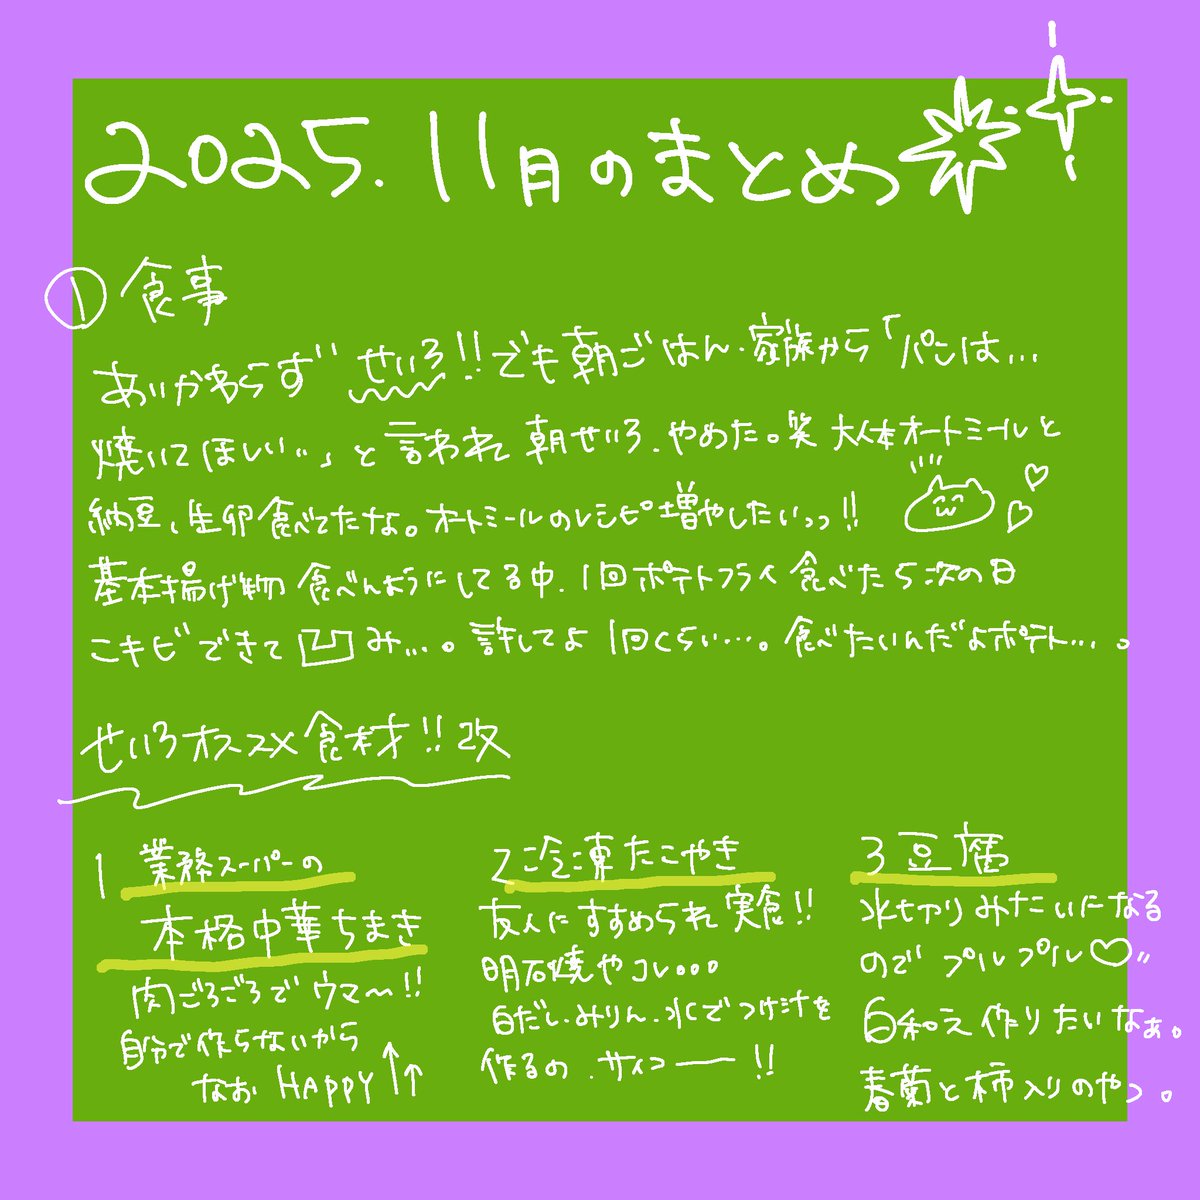 2025.11月のまとめ
① 食事
あいかわらず せいろ!!でも朝ごはん、家族から「パンは…
焼いてほしい…」と言われ 朝せいろ、やめた。笑 大体オートミールと
納豆、生卵食べてたな。オートミールのレシピ増やしたいっっ!!
基本揚げ物 食べんようにしてる中、1回ポテトフライ 食べたら次の日
こキビできて 凹み…。許してよ 1回くらい…。食べたいんだよポテト…。
せいろオススメ食材!!改
1 業務スーパーの
本格中華ちまき
肉ごろごろで ウマ〜!!
自分で作らないから
なお HAPPY↑↑
2 冷凍たこやき
友人にすすめられ 実食!!
明石焼やコレ。。。
白だし、みりん、水でつけ汁を
作るの、サイコー!!
3 豆腐
水切りみたいになる
ので プルプル♡"
白和え作りたいなぁ。
春菊と柿入りのやつ。